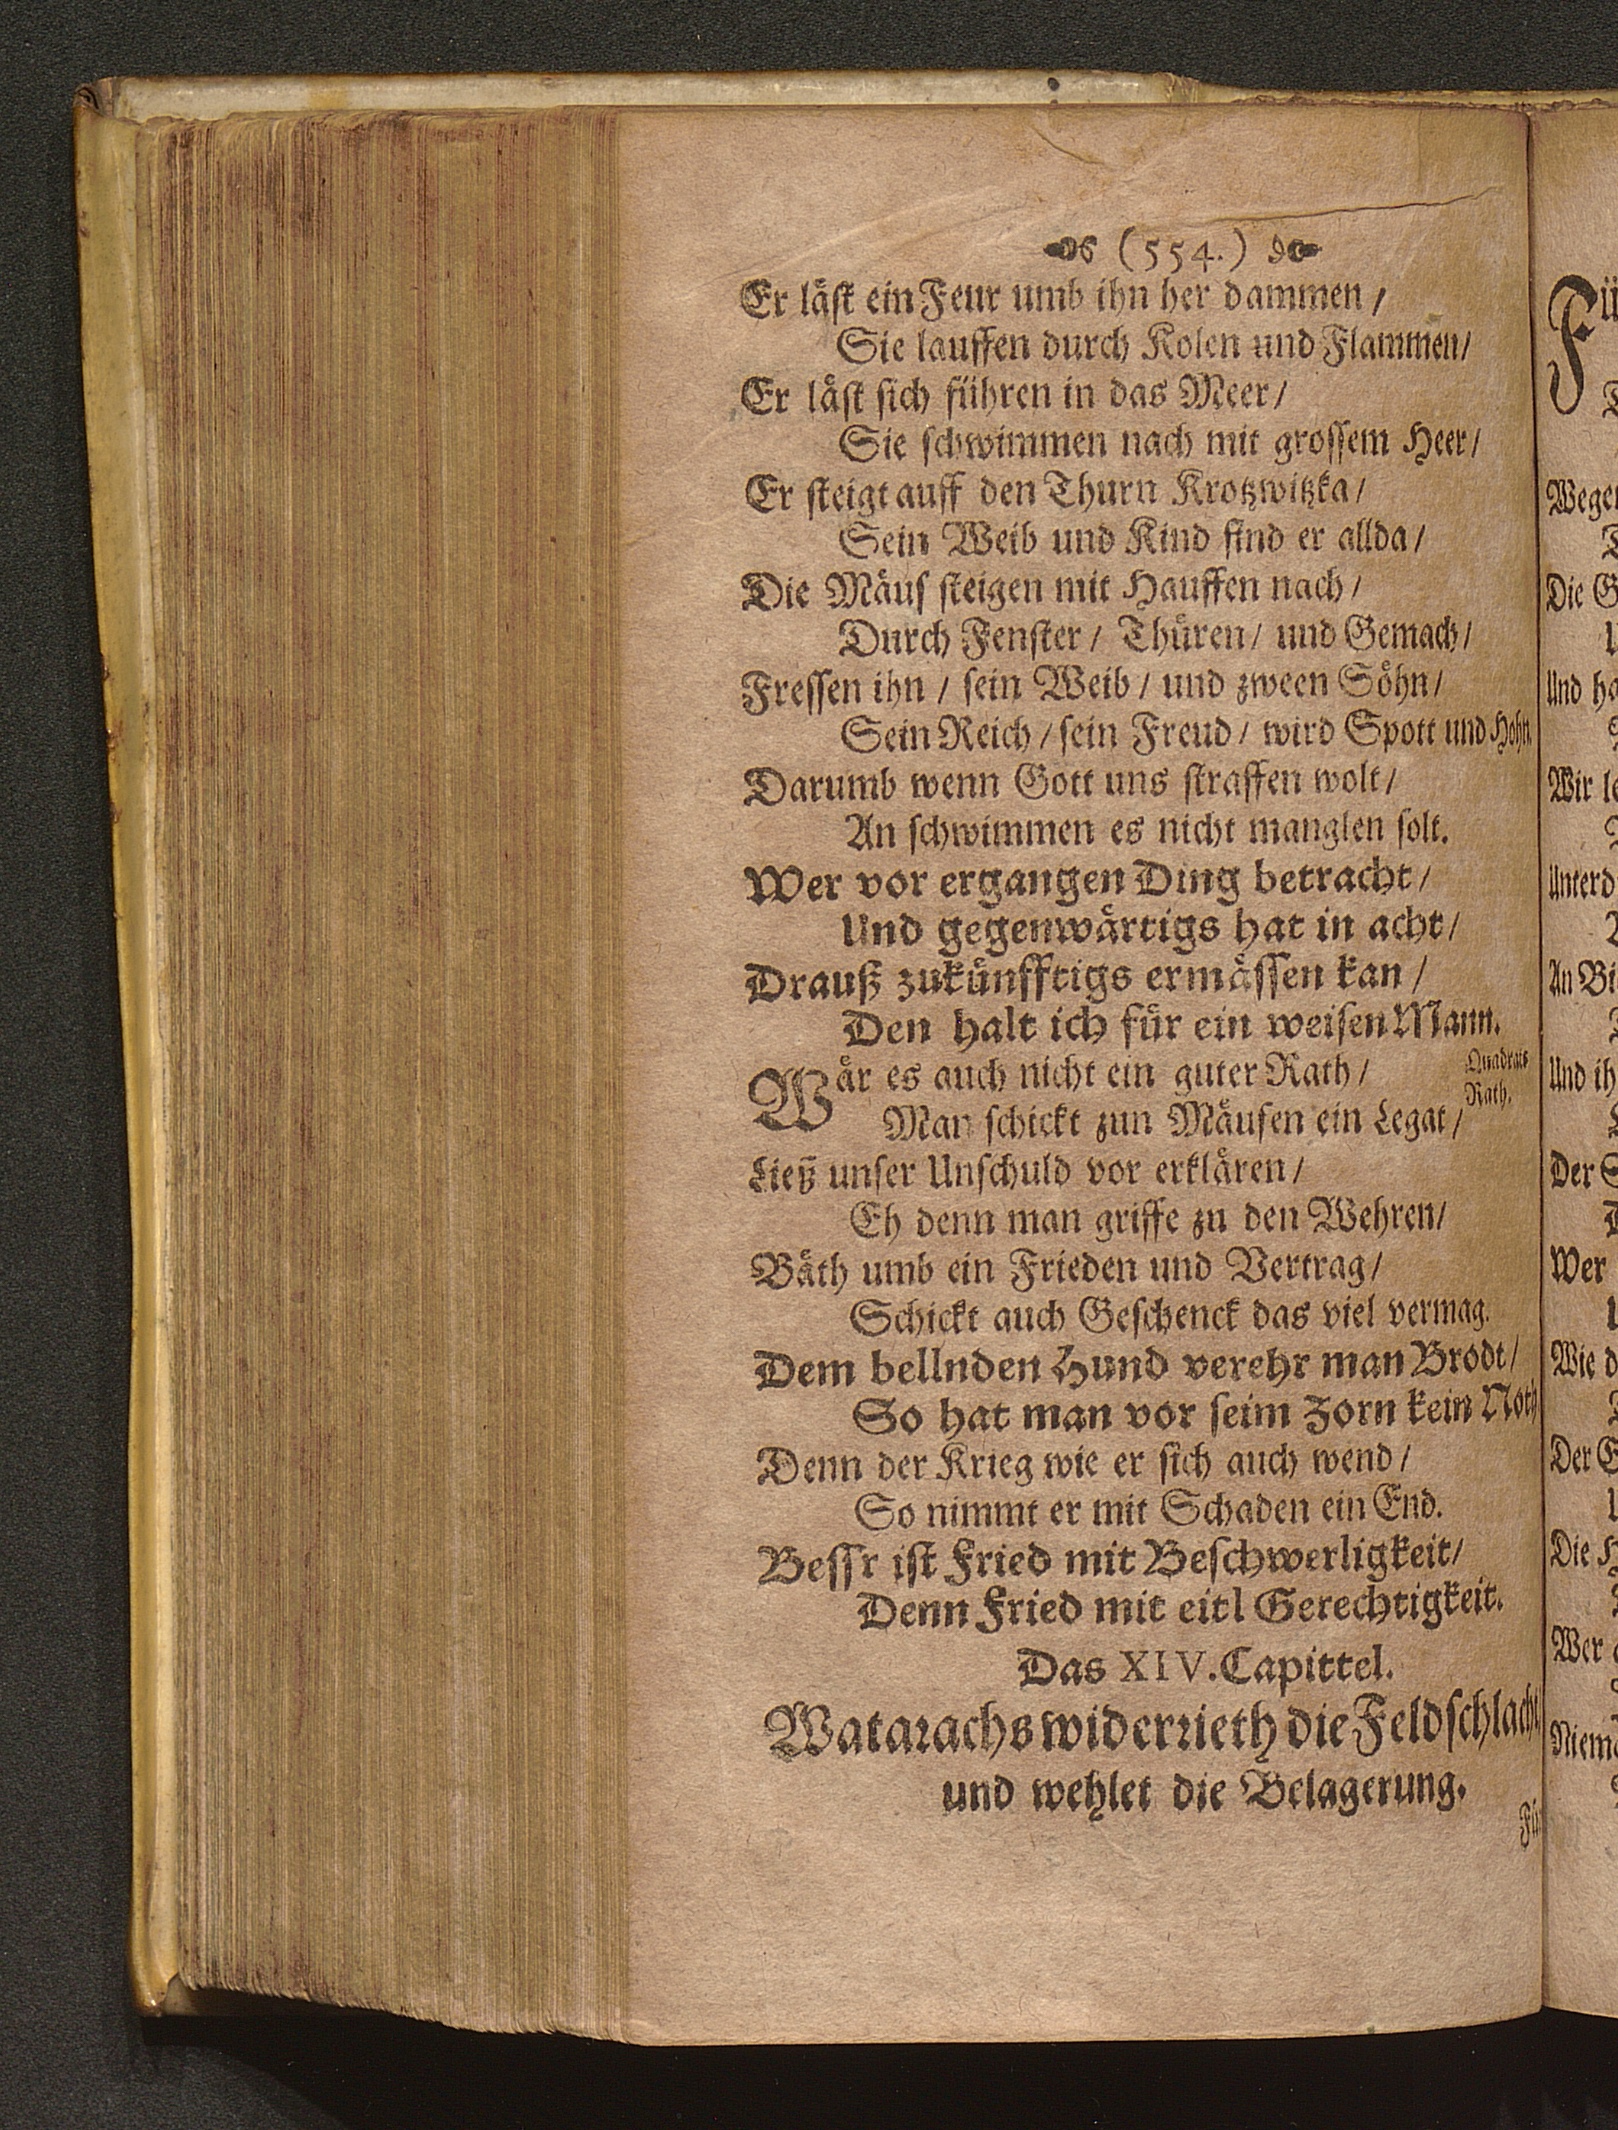 (554.)
Er läst ein Feur umb ihn her dammen /
Sie lauffen durch Kolen und Flammen/
Er läst sich führen in das Meer/
Sie schwimmen nach mit grossem Heer/
Er steigt auff den Thurn Krotzwitzka/
Sein Weib und Kind find er allda/
Die Mäus steigen mit Hauffen nach/
Durch Fenster/ Thüren/ und Gemach/
Fressen ihn / sein Weib / und zween Söhn/
Sein Reich / sein Freud / wird Spott und Hohn.
Darumb wenn Gott uns straffen wolt/
An schwimmen es nicht manglen solt.
Wer vor ergangen Ding betracht/
Und gegenwärtigs hat in acht/
Drauß zukünfftigs ermässen kan/
Den halt ich für ein weisen Mann.
Wär es auch nicht ein guter Rath/
Quadrats
Rath.
Man schickt zun Mäusen ein Legat/
Ließ unser Unschuld vor erklären/
Eh denn man griffe zu den Wehren/
Bäth umb ein Frieden und Vertrag/
Schickt auch Geschenck das viel vermag.
Dem bellnden Hund verehr man Brodt/
So hat man vor seim Zorn kein Noth
Denn der Krieg wie er sich auch wend/
So nimmt er mit Schaden ein End.
Bessr ist Fried mit Beschwerligkeit/
Denn Fried mit eitl Gerechtigkeit.
Das XIV. Capittel.
Watarachs widerrieth die Feldschlacht
und wehlet die Belagerung.
Für
Wegen
Die G
Und ha
Wir le
Unterd
An Bi
Und ih
Der S
Wer
Wie d
Der E
Die H
Wer
Niema